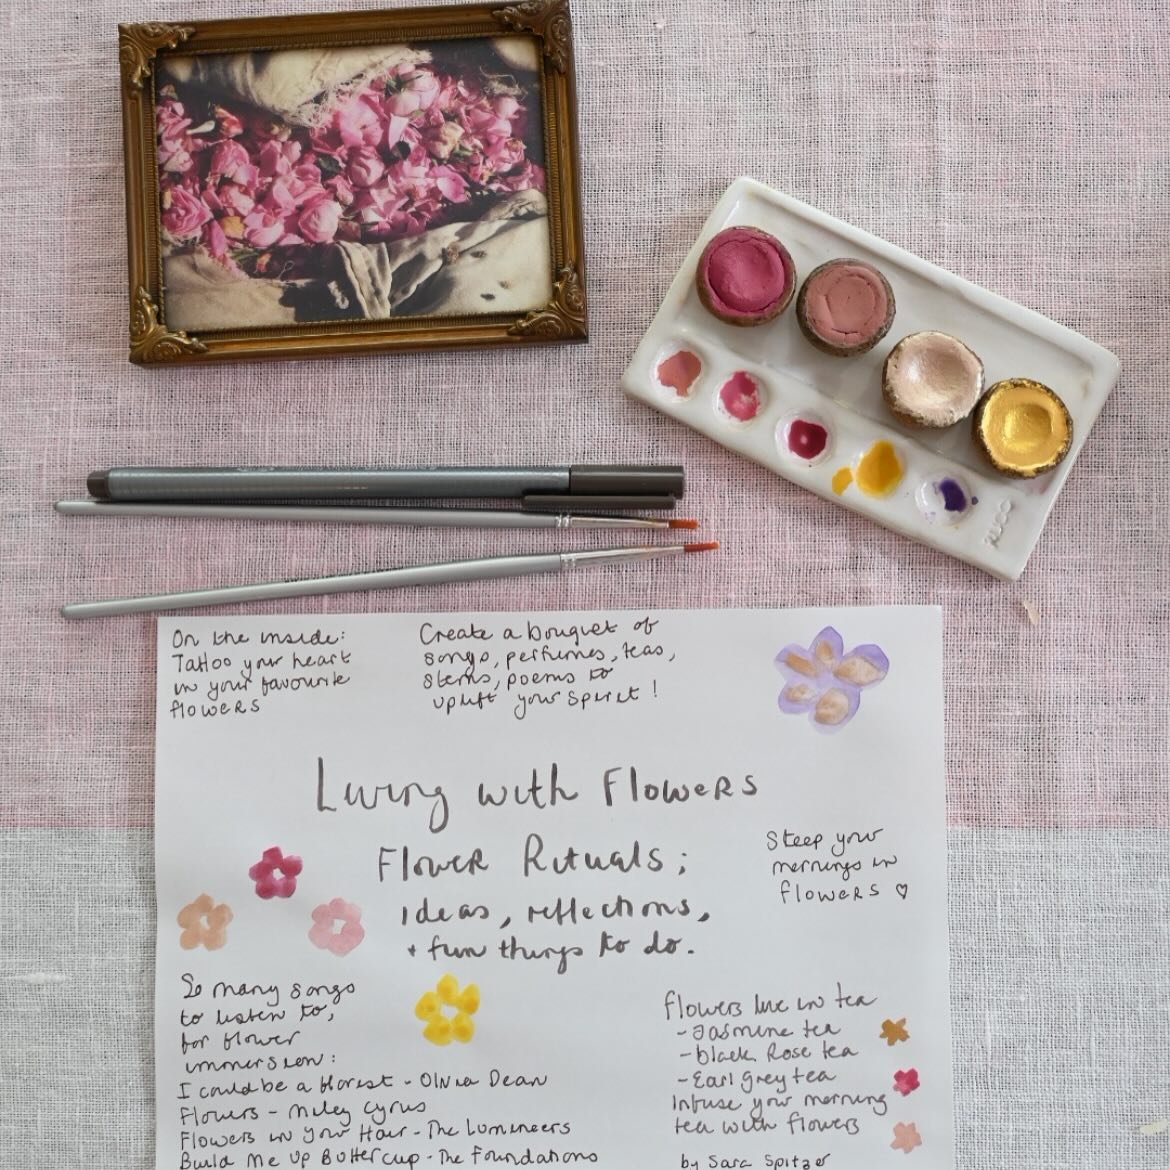 On the inside:
Tattoo your heart
in your favourite
flowers
Create a bouquet of
songs, perfumes, teas,
stems, poems to
uplift your spirit!
Living with Flowers
Flower Rituals;
ideas, reflections,
+ fun things to do.
Steep your
mornings in
flowers ♡
So many songs
to listen to,
for flower
immersion:
I could be a florist - Olivia Dean
Flowers - Miley Cyrus
Flowers in Your Hair - The Lumineers
Build Me Up Buttercup - The Foundations
flowers live in tea
- Jasmine tea
- black Rose tea
- Earl grey tea
Infuse your morning
tea with flowers
by Sara Spitzer